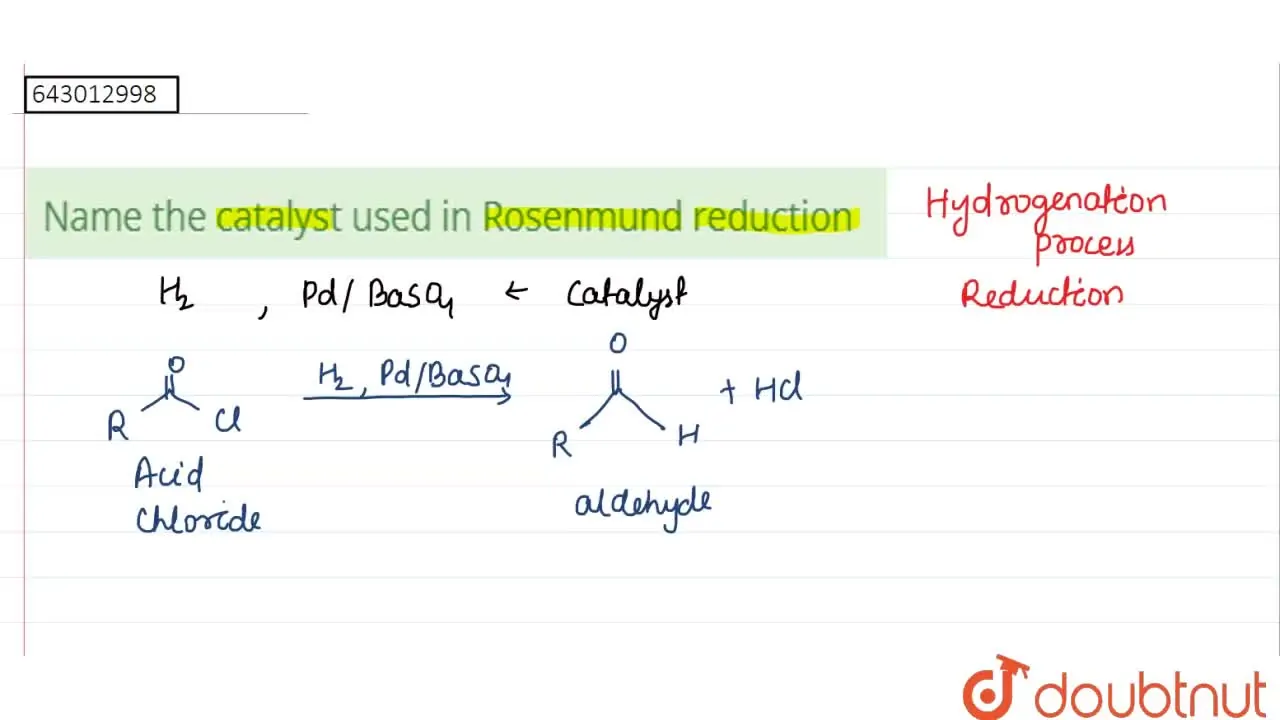 643012998
Name the catalyst used in Rosenmund reduction
Hydrogenation
process
Reduction
H2 , Pd/BaSO4 ← Catalyst
O
R Cl
H2, Pd/BaSO4
O
R H
+ HCl
Acid
Chloride
aldehyde
doubtnut